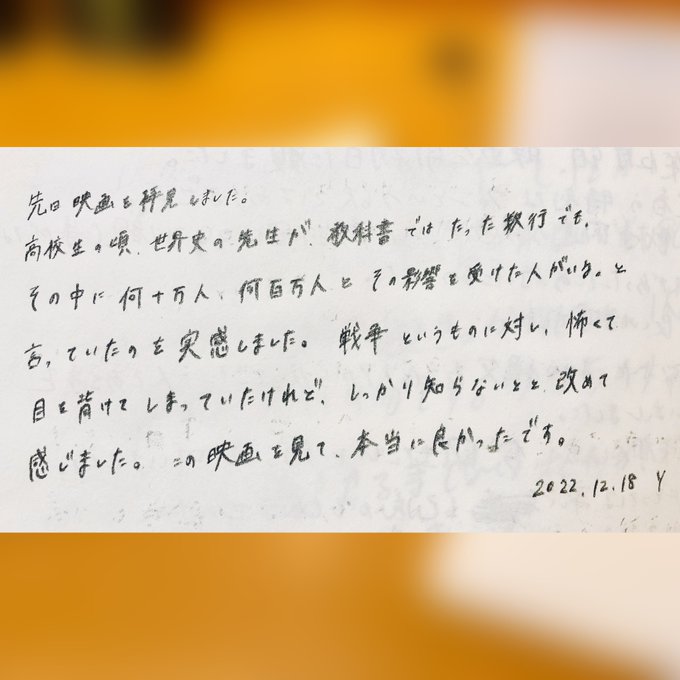 先日 映画を拝見しました。
高校生の頃、世界史の先生が、教科書ではたった数行でも、
その中に何十万人、何百万人とその影響を受けた人がいる。と
言っていたのを実感しました。 戦争というものに対し、怖くて
目を背けてしまっていたけれど、しっかり知らないとと、改めて
感じました。 この映画を見て、本当に良かったです。
2022.12.18 Y